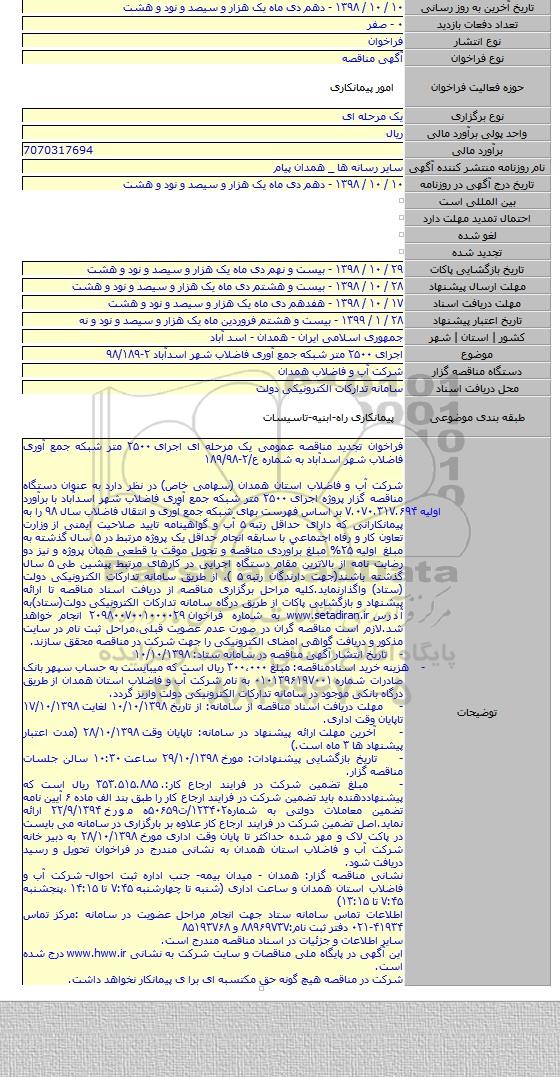 تاریخ آخرین به روز رسانی ۱۰ / ۱۰ / ۱۳۹۸ - دهم دی ماه یک هزار و سیصد و نود و هشت
تعداد دفعات بازدید ۰ - صفر
نوع انتشار فراخوان
نوع فراخوان آگهی مناقصه
حوزه فعالیت فراخوان امور پیمانکاری
نوع برگزاری یک مرحله ای
واحد پولی برآورد مالی ریال
برآورد مالی 7070317694
نام روزنامه منتشر کننده آگهی سایر رسانه ها _ همدان پیام
تاریخ درج آگهی در روزنامه ۱۰ / ۱۰ / ۱۳۹۸ - دهم دی ماه یک هزار و سیصد و نود و هشت
بین المللی است
احتمال تمدید مهلت دارد
لغو شده
تجدید شده
تاریخ بازگشایی پاکات ۲۹ / ۱۰ / ۱۳۹۸ - بیست و نهم دی ماه یک هزار و سیصد و نود و هشت
مهلت ارسال پیشنهاد ۲۸ / ۱۰ / ۱۳۹۸ - بیست و هشتم دی ماه یک هزار و سیصد و نود و هشت
مهلت دریافت اسناد ۱۷ / ۱۰ / ۱۳۹۸ - هفدهم دی ماه یک هزار و سیصد و نود و هشت
تاریخ اعتبار پیشنهاد ۲۸ / ۱ / ۱۳۹۹ - بیست و هشتم فروردین ماه یک هزار و سیصد و نود و نه
کشور | استان | شهر جمهوری اسلامی ایران - همدان - اسد آباد
موضوع اجرای ۲۵۰۰ متر شبکه جمع آوری فاضلاب شهر اسدآباد ۲-۹۸/۱۸۹
دستگاه مناقصه گزار شرکت آب و فاضلاب همدان
محل دریافت اسناد سامانه تدارکات الکترونیکی دولت
طبقه بندی موضوعی پیمانکاری راه-ابنیه-تاسیسات
توضیحات
فراخوان تجدید مناقصه عمومی یک مرحله ای اجرای ۲۵۰۰ متر شبکه جمع آوری
فاضلاب شهر اسدآباد به شماره ع/۲-۱۸۹/۹۸
شرکت آب و فاضلاب استان همدان (سهامی خاص) در نظر دارد به عنوان دستگاه
مناقصه گزار پروژه اجرای ۲۵۰۰ متر شبکه جمع آوری فاضلاب شهر اسدآباد با برآورد
اولیه ۷.۰۷۰.۳۱۷.۶۹۴ بر اساس فهرست بهای شبکه جمع آوری و انتقال فاضلاب سال ۹۸ را به
پیمانکارانی که دارای حداقل رتبه ۵ آب و گواهینامه تایید صلاحیت ایمنی از وزارت
تعاون کار و رفاه اجتماعی با سابقه انجام حداقل یک پروژه مرتبط در ۵ سال گذشته به
مبلغ اولیه ۲۵% مبلغ برآوردی مناقصه و تحویل موقت یا قطعی همان پروژه و نیز دو
رضایت نامه از بالاترین مقام دستگاه اجرایی در کارهای مرتبط پیشین طی ۵ سال
گذشته باشند(جهت دارندگان رتبه ۵ )، از طریق سامانه تدارکات الکترونیکی دولت
(ستاد) واگذارنماید.کلیه مراحل برگزاری مناقصه از دریافت اسناد مناقصه تا ارائه
پیشنهاد و بازگشایی پاکات از طریق درگاه سامانه تدارکات الکترونیکی دولت(ستاد)به
آدرس www.setadiran.ir به شماره فراخوان ۲۰۹۸۰۰۷۰۰۱۰۰۰۰۲۹ انجام خواهد
شد.لازم است مناقصه گران در صورت عدم عضویت قبلی،مراحل ثبت نام در سایت
مذکور و دریافت گواهی امضای الکترونیکی را جهت شرکت در مناقصه محقق سازند.
- تاریخ انتشار آگهی مناقصه در سامانه ستاد: ۱۰/۱۰/۱۳۹۸
- هزینه خرید اسنادمناقصه: مبلغ ۳۰۰،۰۰۰ ریال است که میبایست به حساب سپهر بانک
صادرات شماره ۰۱۰۱۳۹۶۱۹۷۰۰۱ به نام شرکت آب و فاضلاب استان همدان از طریق
درگاه بانکی موجود در سامانه تدارکات الکترونیکی دولت واریز گردد.
- مهلت دریافت اسناد مناقصه از سامانه: از تاریخ ۱۰/۱۰/۱۳۹۸ لغایت ۱۷/۱۰/۱۳۹۸
تاپایان وقت اداری.
- آخرین مهلت ارائه پیشنهاد در سامانه: تاپایان وقت ۲۸/۱۰/۱۳۹۸ (مدت اعتبار
پیشنهاد ها ۳ ماه است.)
- تاریخ بازگشایی پیشنهادات: مورخ ۲۹/۱۰/۱۳۹۸ ساعت ۱۰:۳۰ سالن جلسات
مناقصه گزار.
- مبلغ تضمین شرکت در فرایند ارجاع کار: ۳۵۳.۵۱۵.۸۸۵ ریال است که
پیشنهاددهنده باید تضمین شرکت در فرایند ارجاع کار را طبق بند الف ماده ۶ آیین نامه
تضمین معاملات دولتی به شماره۱۲۳۴۰۲/ت۵۰۶۵۹ه مورخ ۲۲/۹/۱۳۹۴ ارائه
نماید.اصل تضمین شرکت در فرایند ارجاع کار علاوه بر بارگزاری در سامانه می بایست
در پاکت لاک و مهر شده حداکثر تا پایان وقت اداری مورخ ۲۸/۱۰/۱۳۹۸ به دبیر خانه
شرکت آب و فاضلاب استان همدان به نشانی مندرج در فراخوان تحویل و رسید
دریافت شود.
نشانی مناقصه گزار: همدان - میدان بیمه- جنب اداره ثبت احوال- شرکت آب و
فاضلاب استان همدان و ساعت اداری (شنبه تا چهارشنبه ۷:۴۵ تا ۱۴:۱۵ ،پنجشنبه
۷:۴۵ تا ۱۳:۱۵)
اطلاعات تماس سامانه ستاد جهت انجام مراحل عضویت در سامانه :مرکز تماس
۰۲۱-۴۱۹۳۴ دفتر ثبت نام:۸۸۹۶۹۷۳۷ و ۸۵۱۹۳۷۶۸
سایر اطلاعات و جزئیات در اسناد مناقصه مندرج است.
این آگهی در پایگاه ملی مناقصات و سایت شرکت به نشانی www.hww.ir درج شده
است.
شرکت در مناقصه هیچ گونه حق مکتسبه ای برا ی پیمانکار نخواهد داشت.